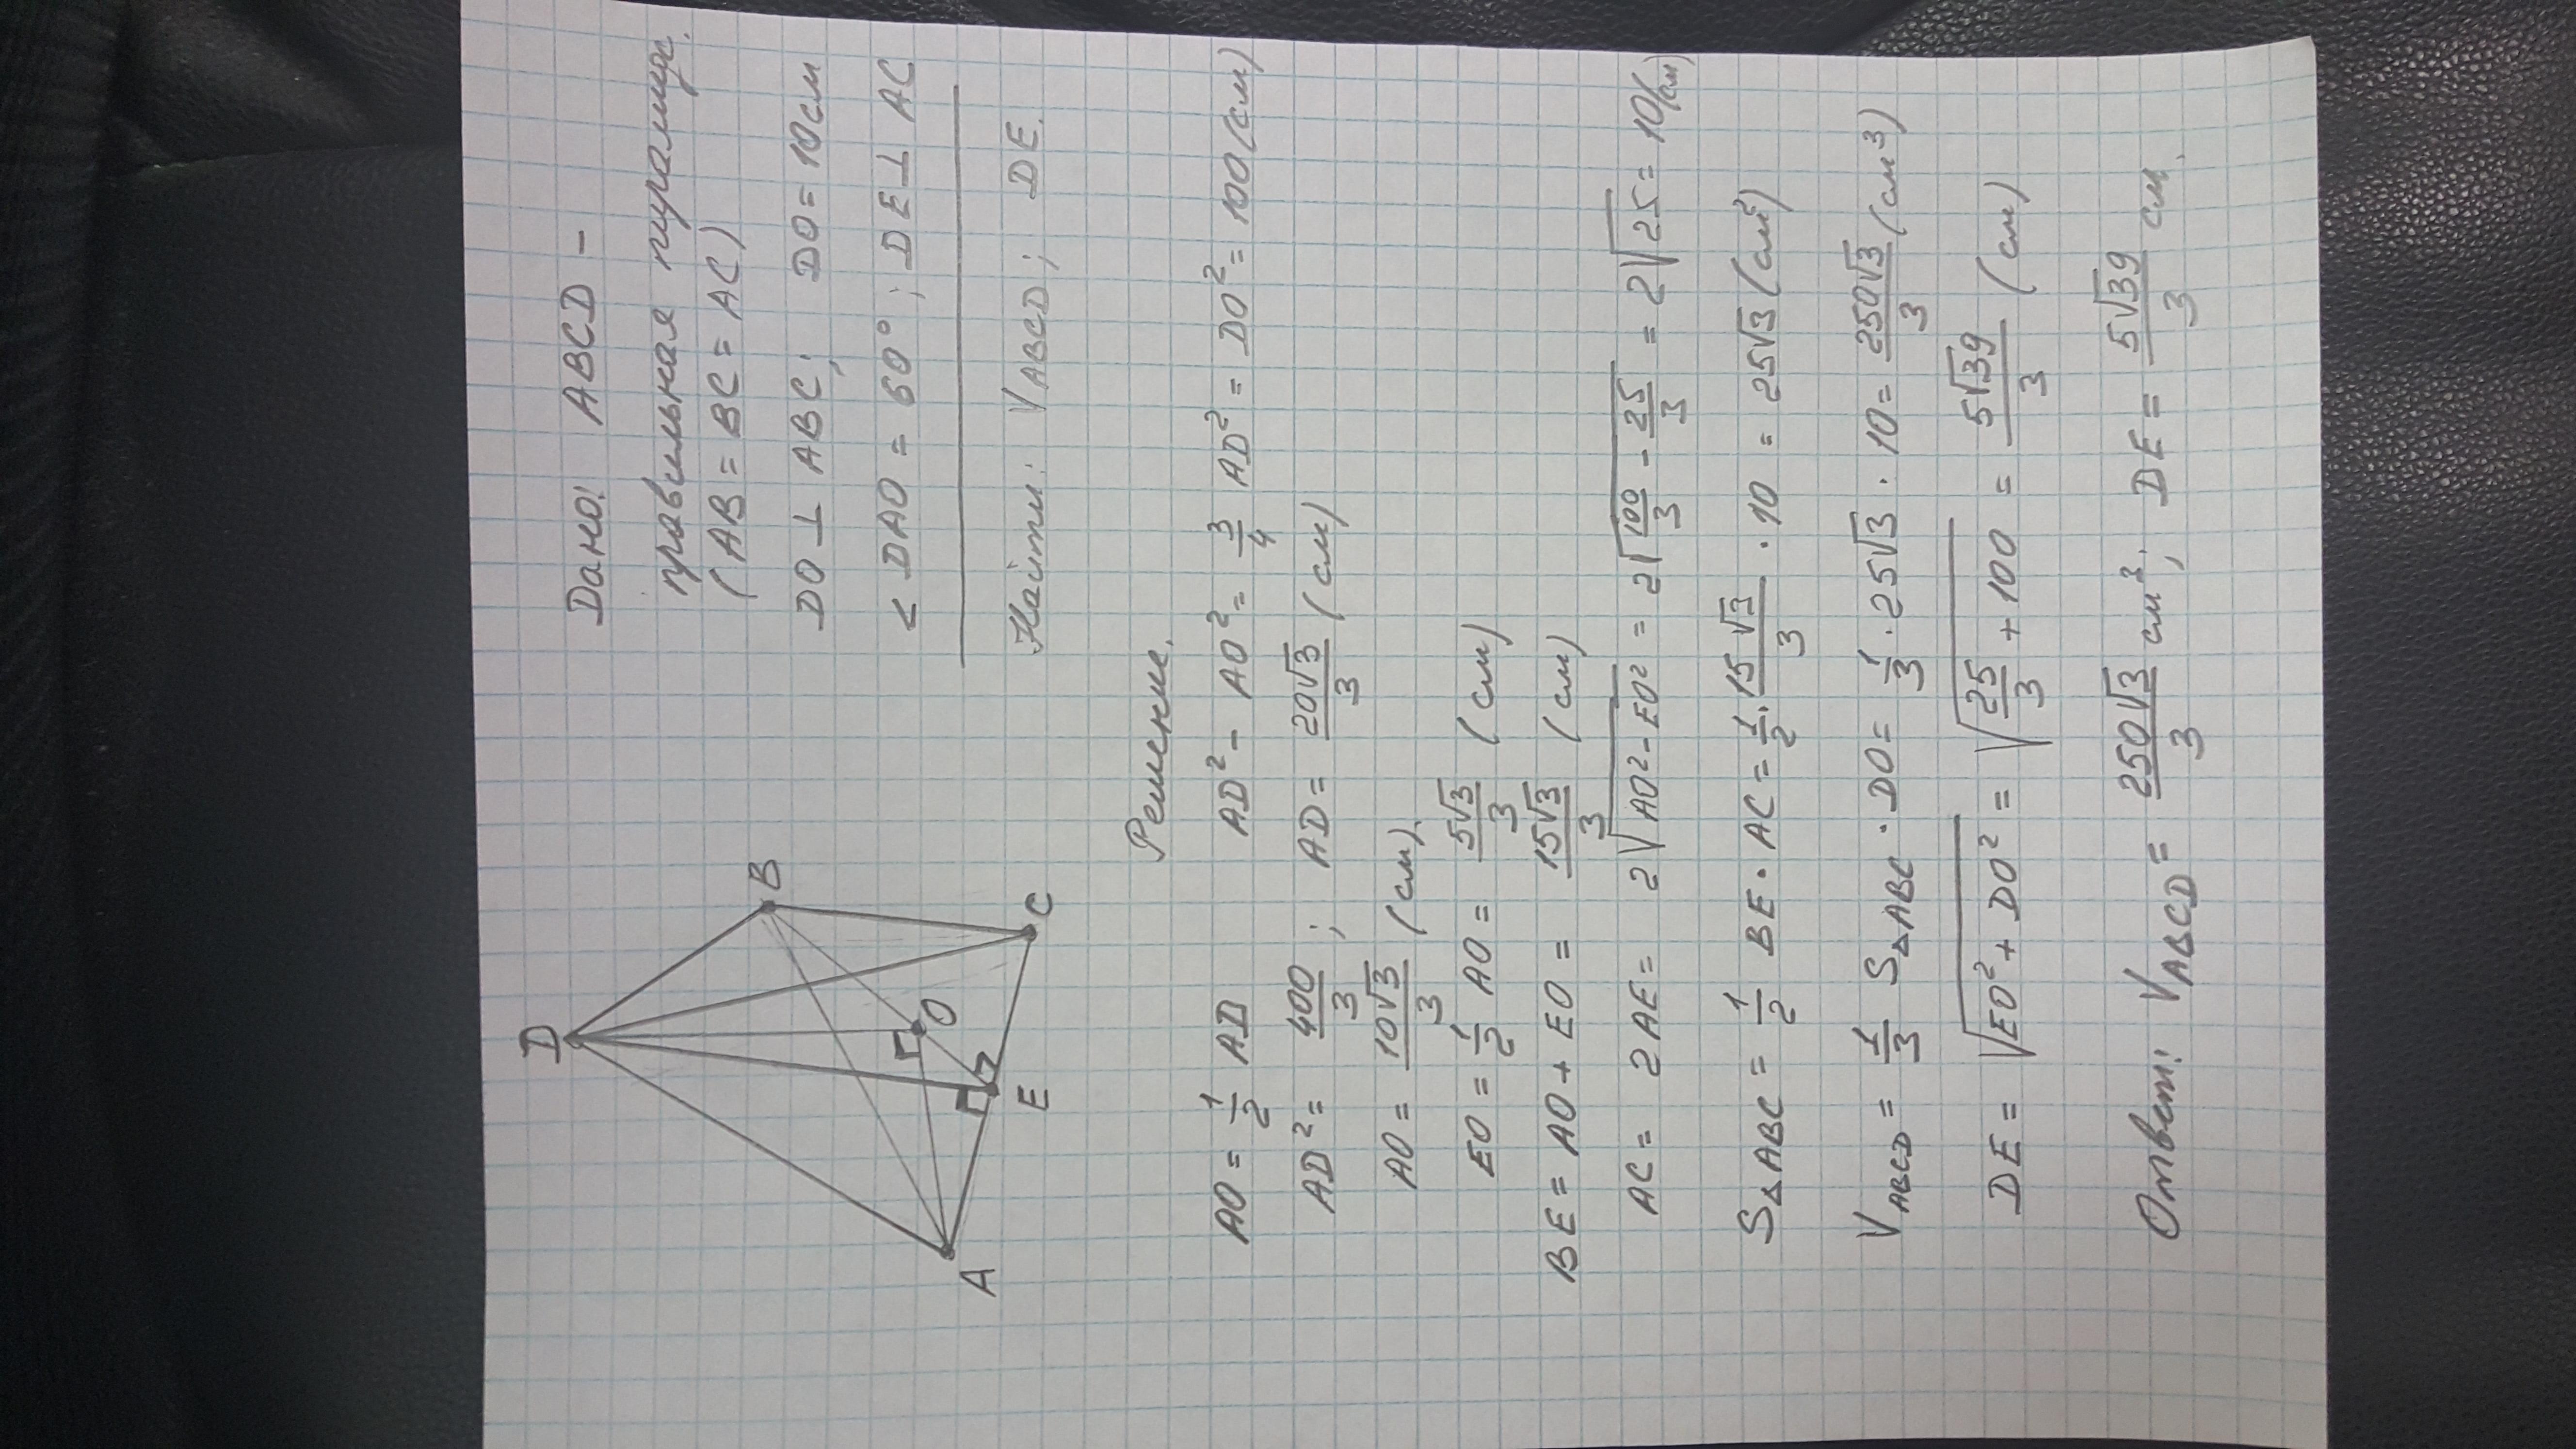 Дано: ABCD –
правильная пирамида.
(AB = BC = AC)
DO ⊥ ABC; DO = 10 см
< DAO = 60°; DE ⊥ AC
Найти: V ABCD; DE.
D
B
O
C
E
A
Решение.
AO = 1/2 AD AD² - AO² = 3/4 AD² = DO² = 100 (см)
AD² = 400/3; AD = 20√3/3 (см)
AO = 10√3/3 (см).
EO = 1/2 AO = 5√3/3 (см)
BE = AO + EO = 15√3/3 (см)
AC = 2AE = 2√(AO² - EO²) = 2√(100/3 - 25/3) = 2√25 = 10 (см)
S△ABC = 1/2 BE · AC = 1/2 · 15√3/3 · 10 = 25√3 (см²)
V ABCD = 1/3 S△ABC · DO = 1/3 · 25√3 · 10 = 250√3/3 (см³)
DE = √(EO² + DO²) = √(25/3 + 100) = 5√39/3 (см)
Ответ: V ABCD = 250√3/3 см³; DE = 5√39/3 см.